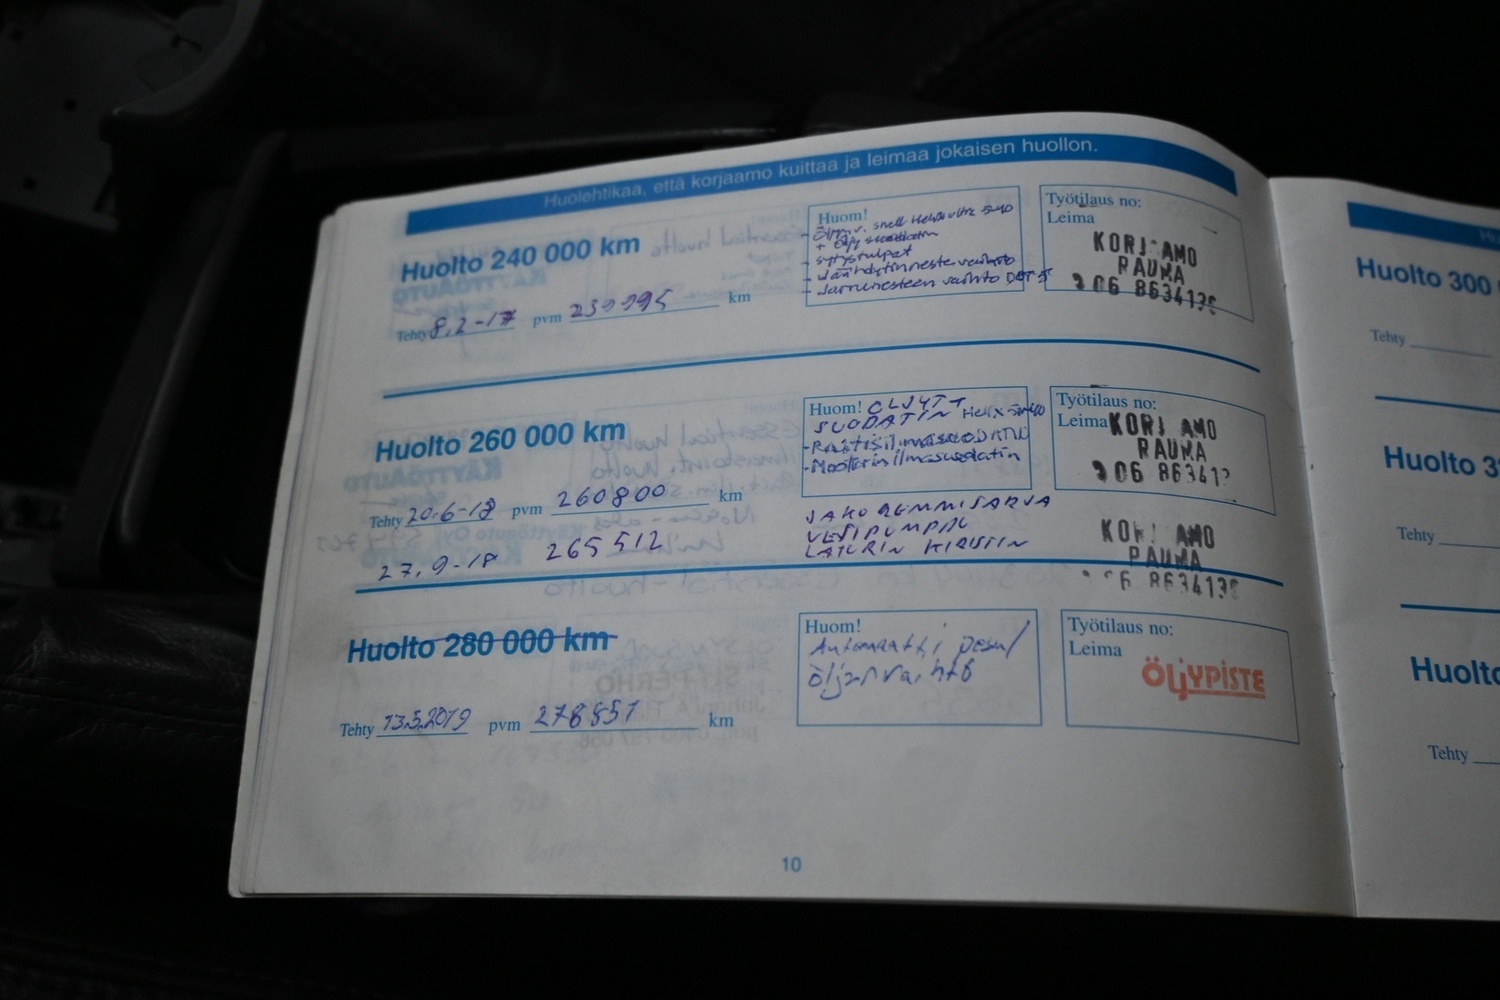 Huolehtikaa, että korjaamo kuittaa ja leimaa jokaisen huollon.
Huolto 240 000 km
Tehty 8.2-17 pvm 239995 km
Huom!
Öljyn v. shell Helix ultra 5-40
+ Öljysuodatin
- sytystulpat
- Jäähdytinneste vaihto
- Jarrunesteen vaihto DOT 5
Työtilaus no:
Leima
KORJ AMO
RAUMA
06 863413
Huolto 260 000 km
Tehty 20.6-18 pvm 260800 km
27.9-18 265512
Huom! ÖLJYT+
SUODATIN Helix 5-40
- Raitisilmasuodatin
- Moottorin ilmasuodatin
JAKOREMMISARJA
VESIPUMPPU
LATURIN HIHNA
Työtilaus no:
Leima
KORJ AMO
RAUMA
06 86341
KORJ AMO
RAUMA
6 863413
Huolto 280 000 km
Tehty 13.5.2019 pvm 278851 km
Huom!
Automaatti pesu/
öljynvaihto
Työtilaus no:
Leima
ÖLJYPISTE
10
Huolto 300
Tehty
Huolto 3
Tehty
Huolto
Tehty